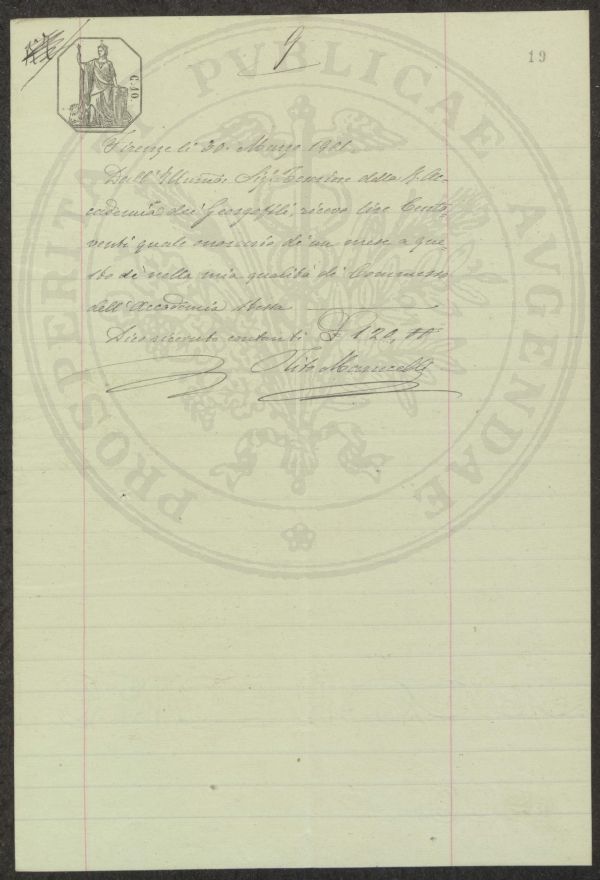 9
19
C. 10.
PROSPERITATI PVBLICAE AVGENDAE
Firenze li 30. Marzo 1901.
Dall' Sig. Censore della R. Ac=
cademia dei Georgofili, ricevo lire Cento=
venti quale onorario di un mese a que=
sto dì nella mia qualità di Commesso
dell' Accademia stessa
Dico ricevuto contanti £ 120,
Vito